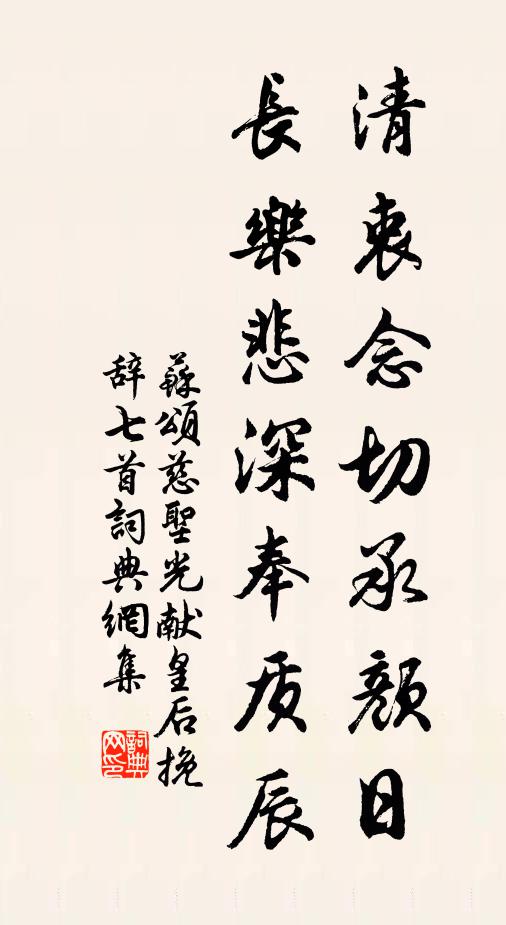 清衷念切承顏日
長樂悲深奉质辰
蘇頌慈聖光献皇后挽
辞七首詞典網集
詞典網印